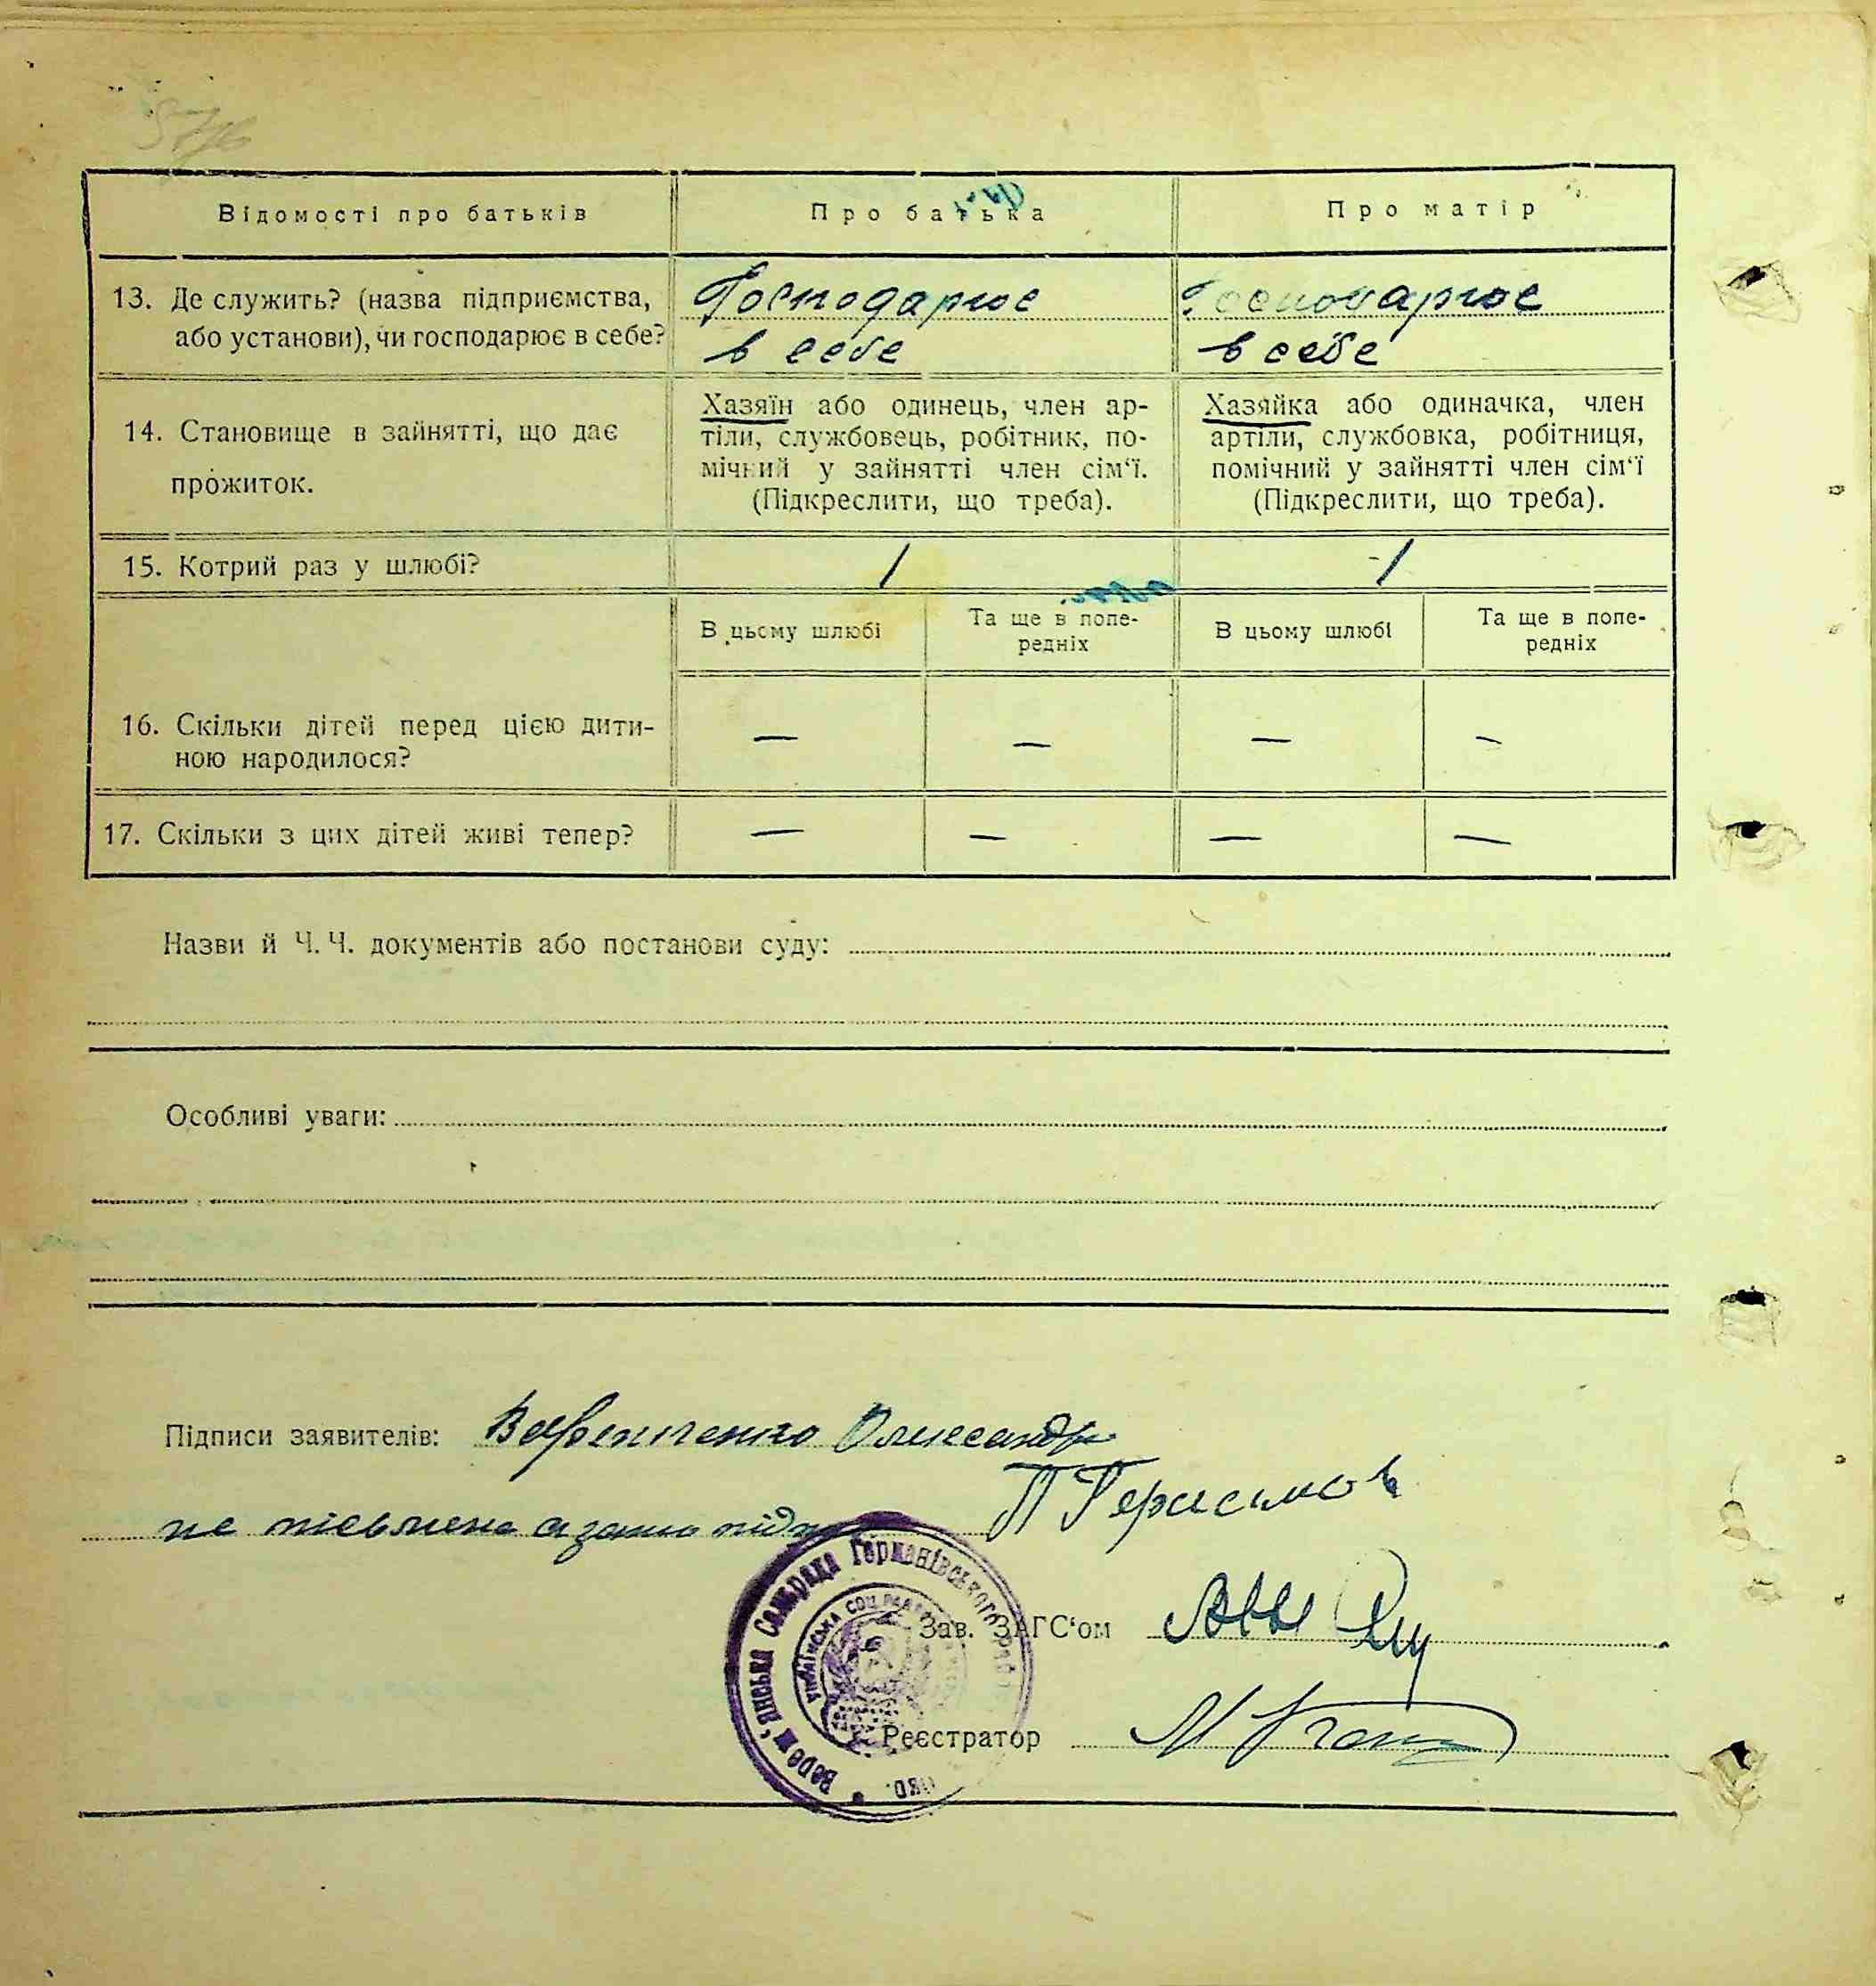 Відомості про батьків
Про батька
Про матір
13. Де служить? (назва підприємства,
або установи), чи господарює в себе?
Господарює
в себе
Господарює
в себе
14. Становище в зайнятті, що дає
прожиток.
Хазяїн або одинець, член ар-
тіли, службовець, робітник, по-
мічний у зайнятті член сім'ї.
(Підкреслити, що треба).
Хазяйка або одиначка, член
артіли, службовка, робітниця,
помічний у зайнятті член сім'ї
(Підкреслити, що треба).
15. Котрий раз у шлюбі?
1
1
В цьому шлюбі
Та ще в попе-
редніх
В цьому шлюбі
Та ще в попе-
редніх
16. Скільки дітей перед цією дити-
ною народилося?
— — — —
17. Скільки з цих дітей живі тепер?
— — — —
Назви й Ч. Ч. документів або постанови суду:
Особливі уваги:
Підписи заявителів: Олександр
П Герасимов
не письмена а за
Германівського
Зав. ЗАГС'ом
Реєстратор